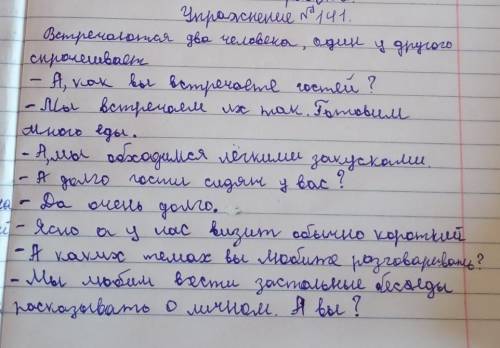 Упражнение №141.
Встречаются два человека, один у другого
спрашивает
- А, как вы встречаете гостей?
- Мы встречаем их так. Готовим
много еды.
- А, мы обходимся лёгкими закусками.
- А долго гости сидят у вас?
- Да очень долго.
- Ясно а у нас визит обычно короткий
- А каких темах вы любите разговаривать?
- Мы любим вести застольные беседы
расказывать о личном. А вы?